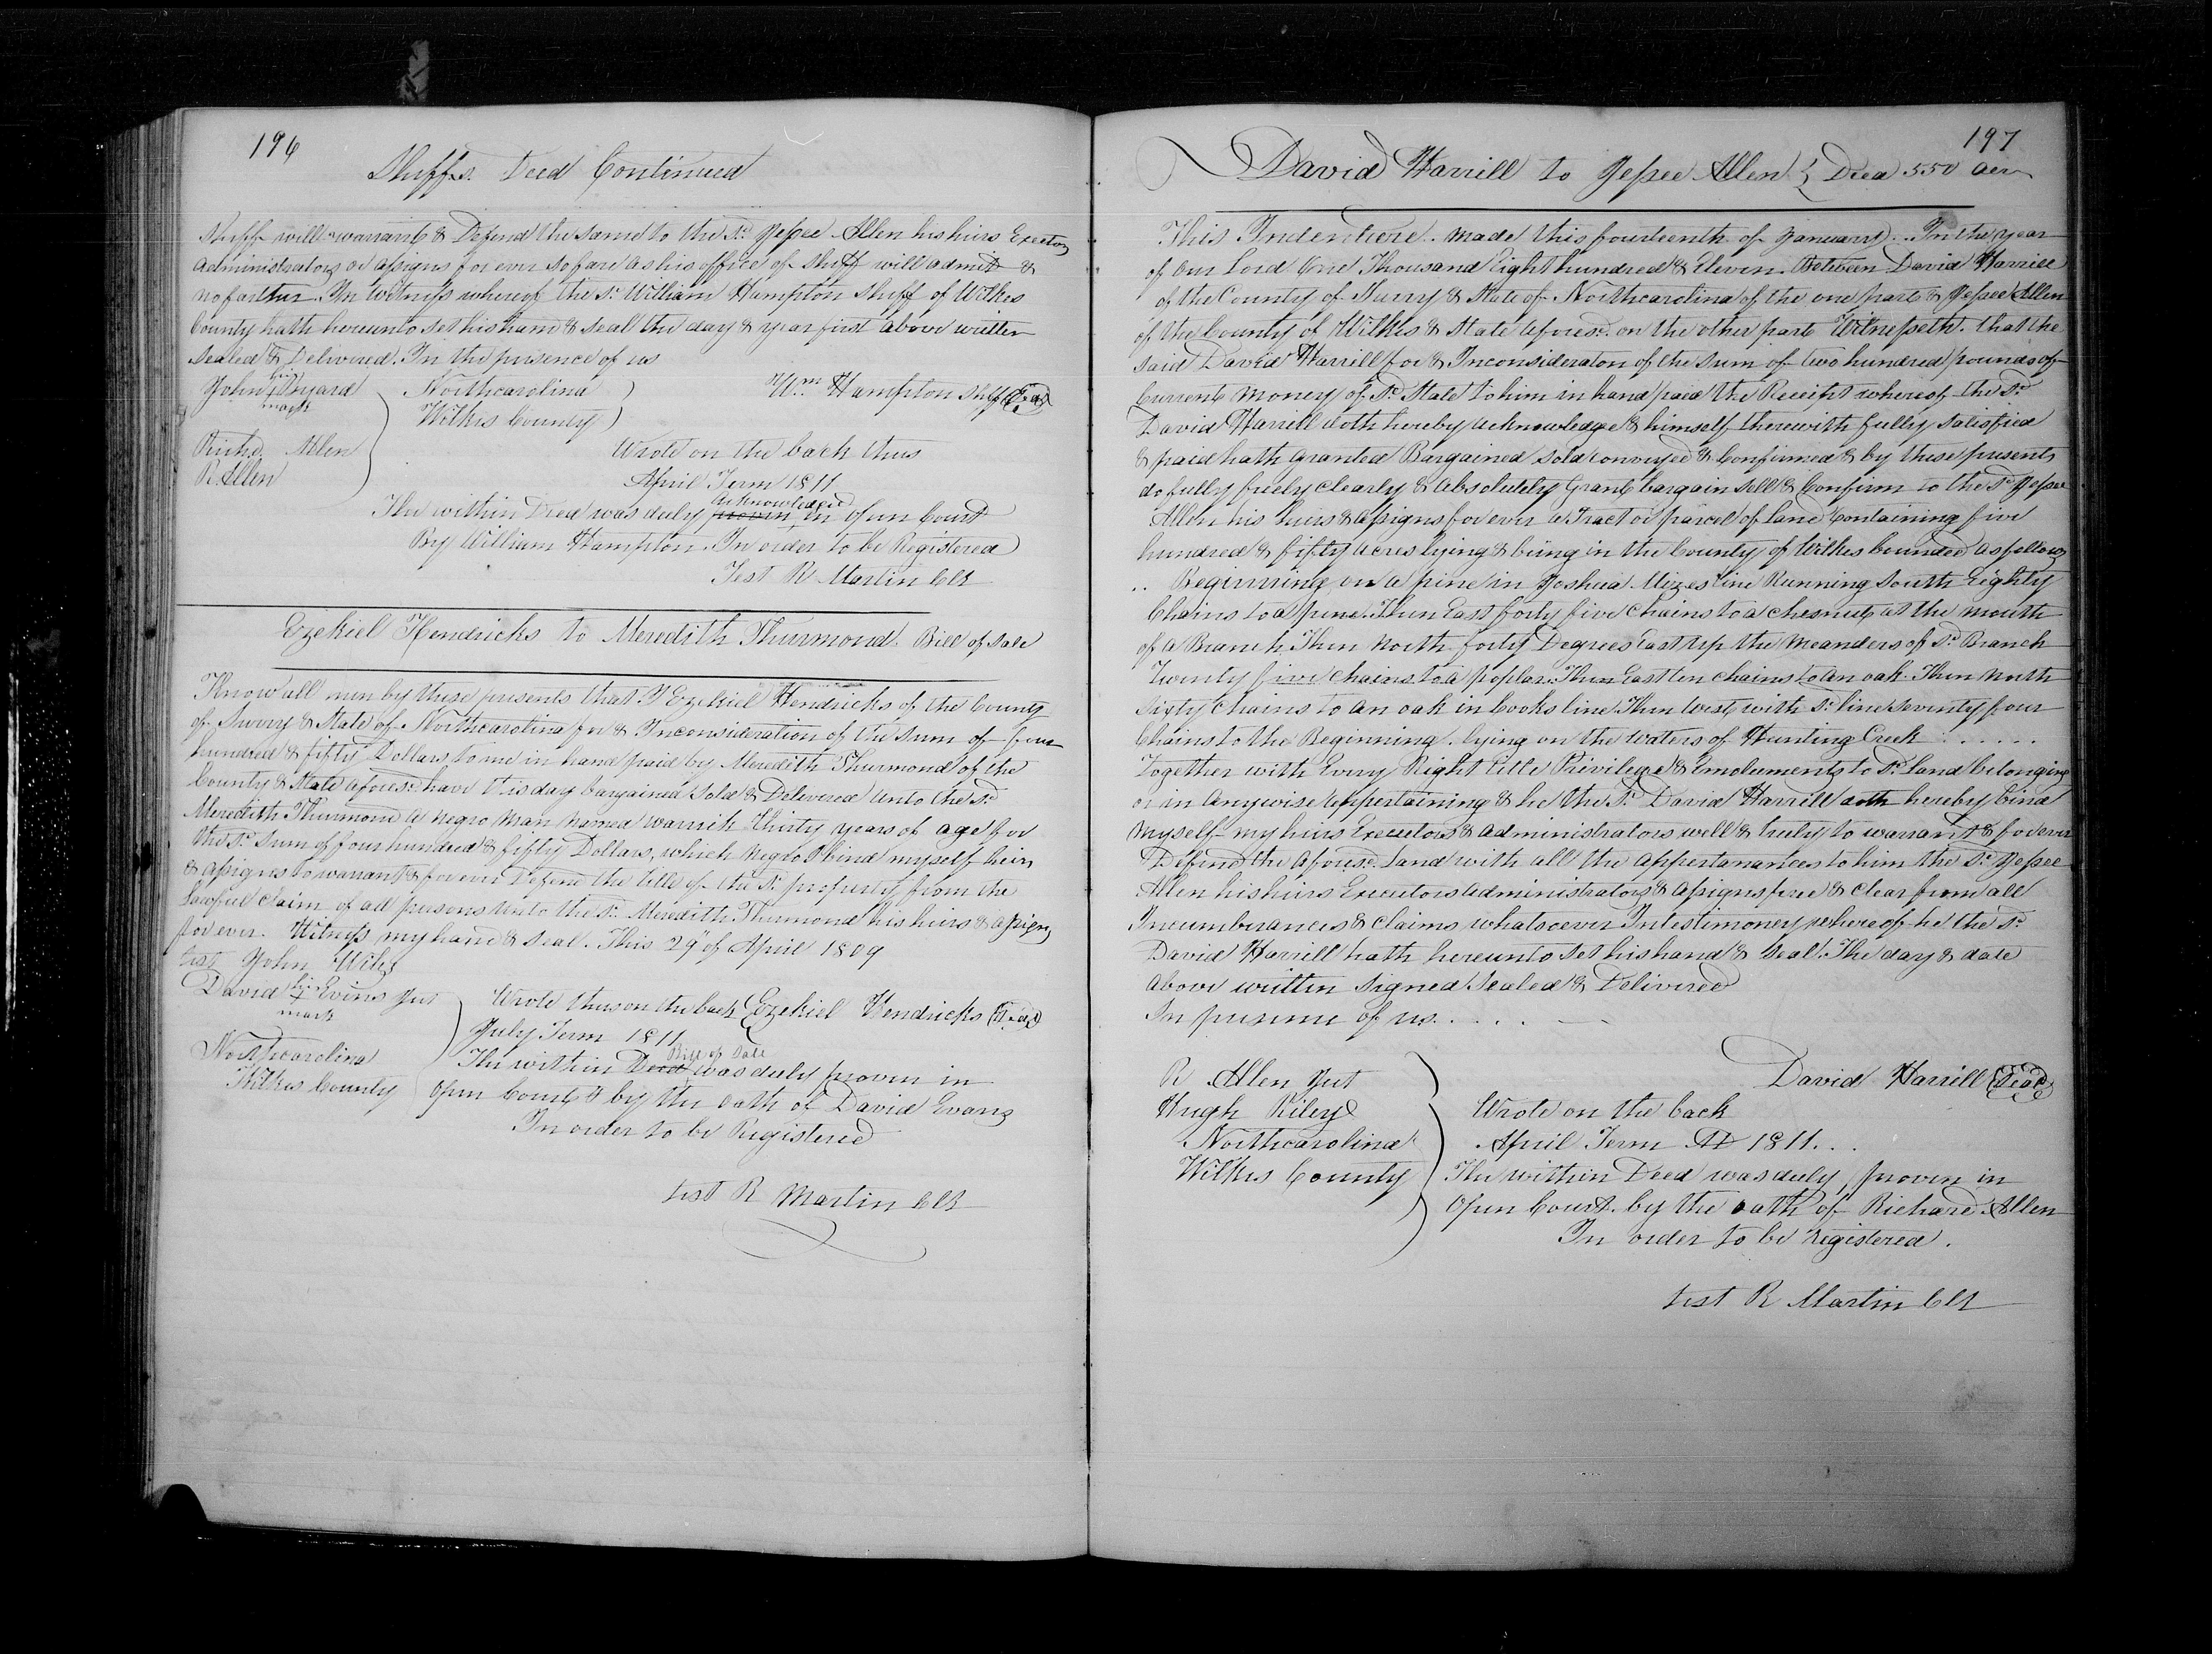 196
Shffs. Deed Continued
Shuff will warrant & Defend the same to the sd. Jessee Allen his heirs Exectors
Administrators or assigns for ever so fare as his office of Shff will admit &
no farther. In Witness whereof the sd. William Hampton Shff of Wilkes
County hath hereunto set his hand & seal the day & year first above written
Sealed & Delivered. In the presence of us
John his mark Northcarolina Wm. Hampton Shff (Seal)
Wilkes County
Richd. Allen Wrote on the back thus
R Allen April Term 1811
The within Deed was duly proven acknowledged in open Court
By William Hampton. In order to be Registered
Test R Martin Clk
Ezekiel Hendricks to Meredith Thurmond. Bill of Sale
Know all men by these presents that I Ezekiel Hendricks of the County
of Surry & State of Northcarolina for & Inconsideration of the sum of four
hundred & fifty Dollars to me in hand paid by Meredith Thurmond of the
County & State aforesd. have this day bargained Sold & Delivered unto the sd.
Meredith Thurmond a negro man named warrick thirty years of age for
the sd. sum of four hundred & fifty Dollars, which negro I bind myself heirs
& assigns to warrant & forever Defend the title of the sd. property from the
lawful claim of all persons unto the sd. Meredith Thurmond his heirs & assigns
for ever. Witness my hand & seal. This 29th of April 1809
test John Wiles
David his mark Evins Jut Wrote thus on the back Ezekiel Hendricks (Seal)
July Term 1811
Northcarolina The within Deed Bill of Sale was duly proven in
Wilkes County open Court & by the oath of David Evans
In order to be Registered
test R Martin Clk
197
David Harrill to Jessee Allen } Deed 550 acrs
This Indenture. made this fourteenth of January. In the year
of our Lord One Thousand Eight hundred & Eleven. Between David Harrill
of the County of Surry & State of Northcarolina of the one part & Jessee Allen
of the County of Wilkes & State aforesd. on the other part Witnesseth. that the
said David Harrill for & Inconsideraton of the sum of two hundred pounds of
Current money of sd. State to him in hand paid the Receipt whereof the sd.
David Harrill doth hereby acknowledge & himself therewith fully satisfied
& paid hath granted Bargained sold conveyed & Confirmed & by these presents
do fully freely clearly & absolutely Grant bargain sell & Confirm to the sd. Jessee
Allen his heirs & assigns for ever a Tract or parcel of land Containing five
hundred & fifty acres lying & being in the County of Wilkes bounded as follows
.. Beginning on a pine in Joshua Mizes line Running South Eighty
Chains to a pine. Then East forty five chains to a chesnut at the mouth
of a Branch. Then North forty Degrees East up the meanders of sd. Branch
Twenty five chains to a poplar. Then East ten chains to an oak. Then North
Sixty Chains to an oak in Cooks line. Then West with sd. line Seventy four
Chains to the Beginning. lying on the waters of Hunting Creek . . . . . .
Together with Every Right title Privilege & Emoluments to sd. Land belonging
or in anywise appertaining & he the sd. David Harrill doth hereby bind
myself my heirs Executors & Administrators well & truly to warrant & forever
Defend the aforesd. Land with all the appertanances to him the sd. Jessee
Allen his heirs Executors Administrators & Assigns free & clear from all
Incumberances & claims whatsoever Intestimoney whereof he the sd.
David Harrill hath hereunto set his hand & Seal. The day & date
above written Signed Sealed & Delivered
In presence of us. . . .
R Allen Jut David Harrill (Seal)
Hugh Riley Wrote on the back
Northcarolina April Term AD 1811. . .
Wilkes County The within Deed was duly proven in
open Court by the oath of Richard Allen
In order to be registered.
test R Martin Clk